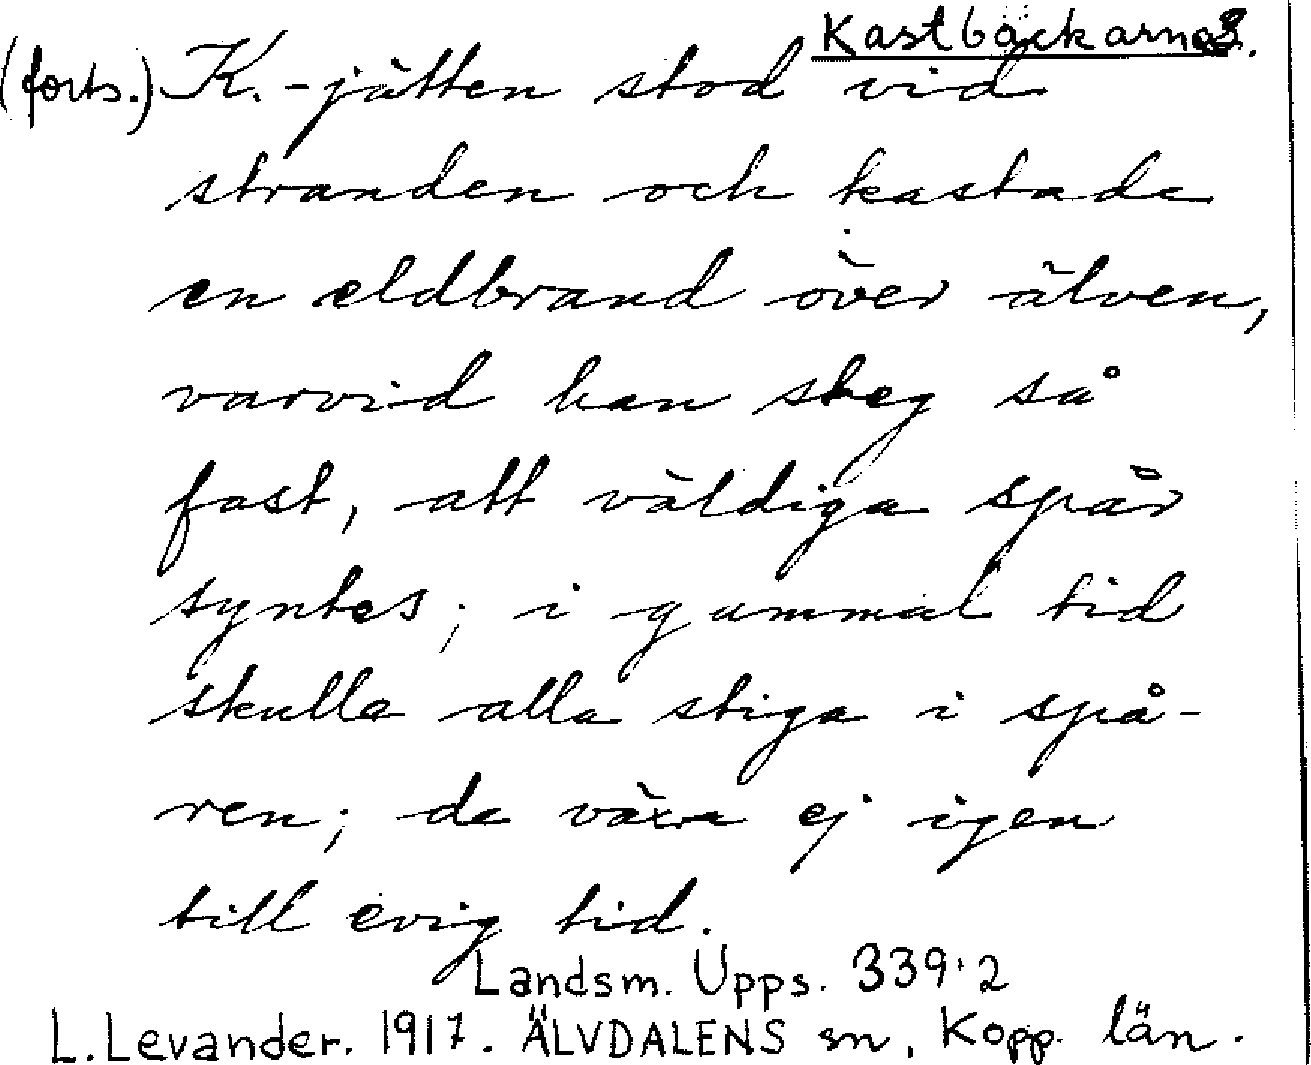 Kastbäckarna 3.
(forts.) K.-jätten stod vid
stranden och kastade
en eldbrand över älven,
varvid han steg så
fast, att väldiga spår
syntes; i gammal tid
skulla alla stiga i spå-
ren; de växa ej igen
till evig tid.
Landsm. Upps. 339:2
L. Levander. 1917. ÄLVDALENS sn, Kopp. län.